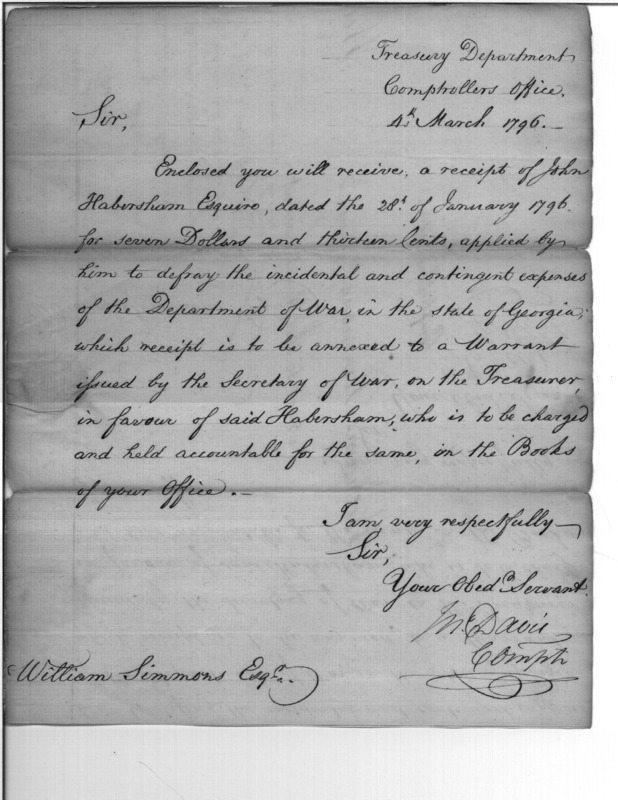 Treasury Department
Comptrollers Office,
4th March 1796.—
Sir,
Enclosed you will receive, a receipt of John
Habersham Esquire, dated the 28th of January 1796.
for seven Dollars and thirteen Cents, applied by
him to defray the incidental and contingent expenses
of the Department of War, in the state of Georgia;
which receipt is to be annexed to a Warrant
issued by the Secretary of War, on the Treasurer,
in favour of said Habersham, who is to be charged
and held accountable for the same, in the Books
of your Office.—
I am very respectfully
Sir,
Your Obedt Servant.
Davis
Comptr
William Simmons Esqr.